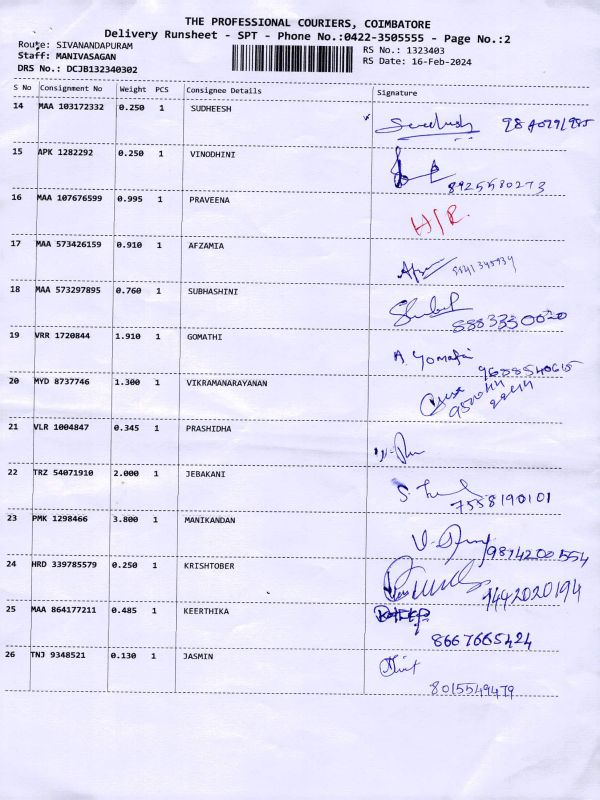 THE PROFESSIONAL COURIERS, COIMBATORE
Delivery Runsheet - SPT - Phone No.:0422-3505555 - Page No.:2
Route: SIVANANDAPURAM
Staff: MANIVASAGAN
DRS No.: DCJB132340302
RS No.: 1323403
RS Date: 16-Feb-2024
S No Consignment No Weight PCS Consignee Details Signature
14 MAA 103172332 0.250 1 SUDHEESH
15 APK 1282292 0.250 1 VINODHINI
8925580273
16 MAA 107676599 0.995 1 PRAVEENA H/R.
17 MAA 573426159 0.910 1 AFZAMIA
18 MAA 573297895 0.760 1 SUBHASHINI
8883330020
19 VRR 1720844 1.910 1 GOMATHI A. Gomathi
9688540615
20 MYD 8737746 1.300 1 VIKRAMANARAYANAN
21 VLR 1004847 0.345 1 PRASHIDHA
22 TRZ 54071910 2.000 1 JEBAKANI
7558190101
23 PMK 1298466 3.800 1 MANIKANDAN
9814200554
24 HRD 339785579 0.250 1 KRISHTOBER
9442020194
25 MAA 864177211 0.485 1 KEERTHIKA
8667665424
26 TNJ 9348521 0.130 1 JASMIN
8015549479